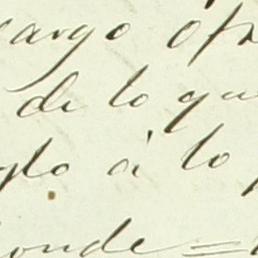 cargo
de lo que
glo á lo
onde =